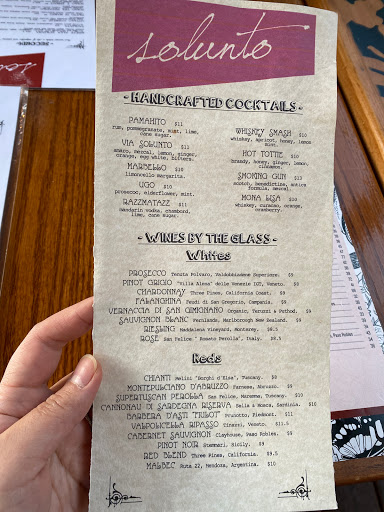 solunto
- HANDCRAFTED COCKTAILS -
PAMAHITO $11
rum, pomegranate, mint, lime,
cane sugar.
VIA SOLUNTO $11
amaro, mezcal, lemon, ginger,
orange, egg white, bitters.
MARBELLO $10
limoncello margarita.
UGO $10
prosecco, elderflower, mint.
RAZZMATAZZ $11
mandarin vodka, chambord,
lime, cane sugar.
WHISKEY SMASH $10
whiskey, apricot, honey, lemon
mint.
HOT TOTTIE $10
brandy, honey, ginger, lemon,
cinnamon.
SMOKING GUN $13
scotch, benedictine, antica
formula, mezcal.
MONA LISA $10
whiskey, curacao, orange,
cranberry.
- WINES BY THE GLASS -
Whites
PROSECCO Tenuta Polvaro, Valdobbiadene Superiore. $9
PINOT GRIGIO "Villa Alena" delle Venezie IGT, Veneto. $8
CHARDONNAY Three Pines, California Coast. $9
FALANGHINA Feudi di San Gregorio, Campania. $9
VERNACCIA DI SAN GIMIGNANO Organic, Teruzzi & Puthod. $9
SAUVIGNON BLANC Marlborough New Zealand. $9
RIESLING Maddalena Vineyard, Monterey. $8.5
ROSE San Felice " Rosato Perolla", Italy. $8.5
Reds
CHIANTI Melini "Borghi d'Elsa", Tuscany. $8
MONTEPULCIANO D'ABRUZZO Farnese, Abruzzo. $8
SUPERTUSCAN PEROLLA San Felice, Maremma, Tuscany. $10
CANNONAU DI SARDEGNA RISERVA Sella & Mosca, Sardinia. $10
BARBERA D'ASTI Prunotto, Piedmont. $11
VALPOLICELLA RIPASSO Tinazzi, Veneto. $11.5
CABERNET SAUVIGNON Clayhouse, Paso Robles. $9
PINOT NOIR Stemmari, Sicily. $9
RED BLEND Three Pines, California. $9.5
MALBEC Ruta 22, Mendoza, Argentina. $10